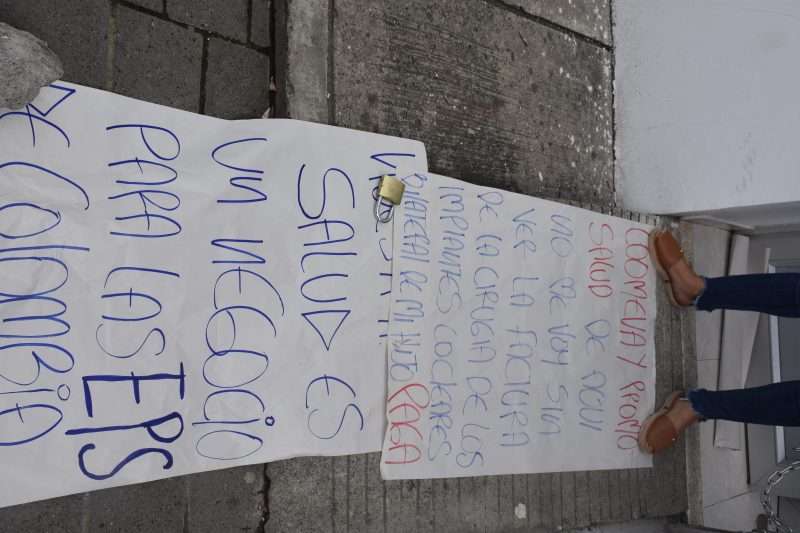 COOMEVA Y PRONTO
SALUD DE AQUI
NO ME VOY SIN
VER LA FACTURA
DE LA CIRUGIA DE LOS
IMPANTES COCLARES
BILATERAL DE MI HIJO PAGA
SALUD ES
UN NEGOCIO
PARA LAS EPS
DE COLOMBIA